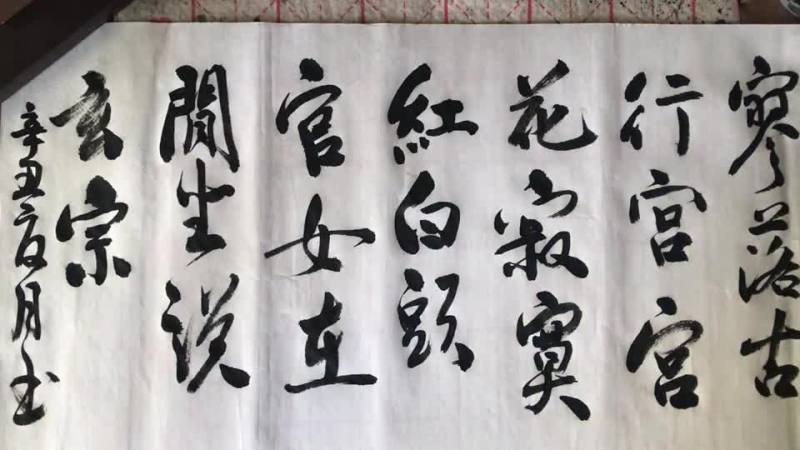 寥落古
行宫宫
花寂寞
紅白頭
官女在
閒坐説
玄宗
辛丑夏月书